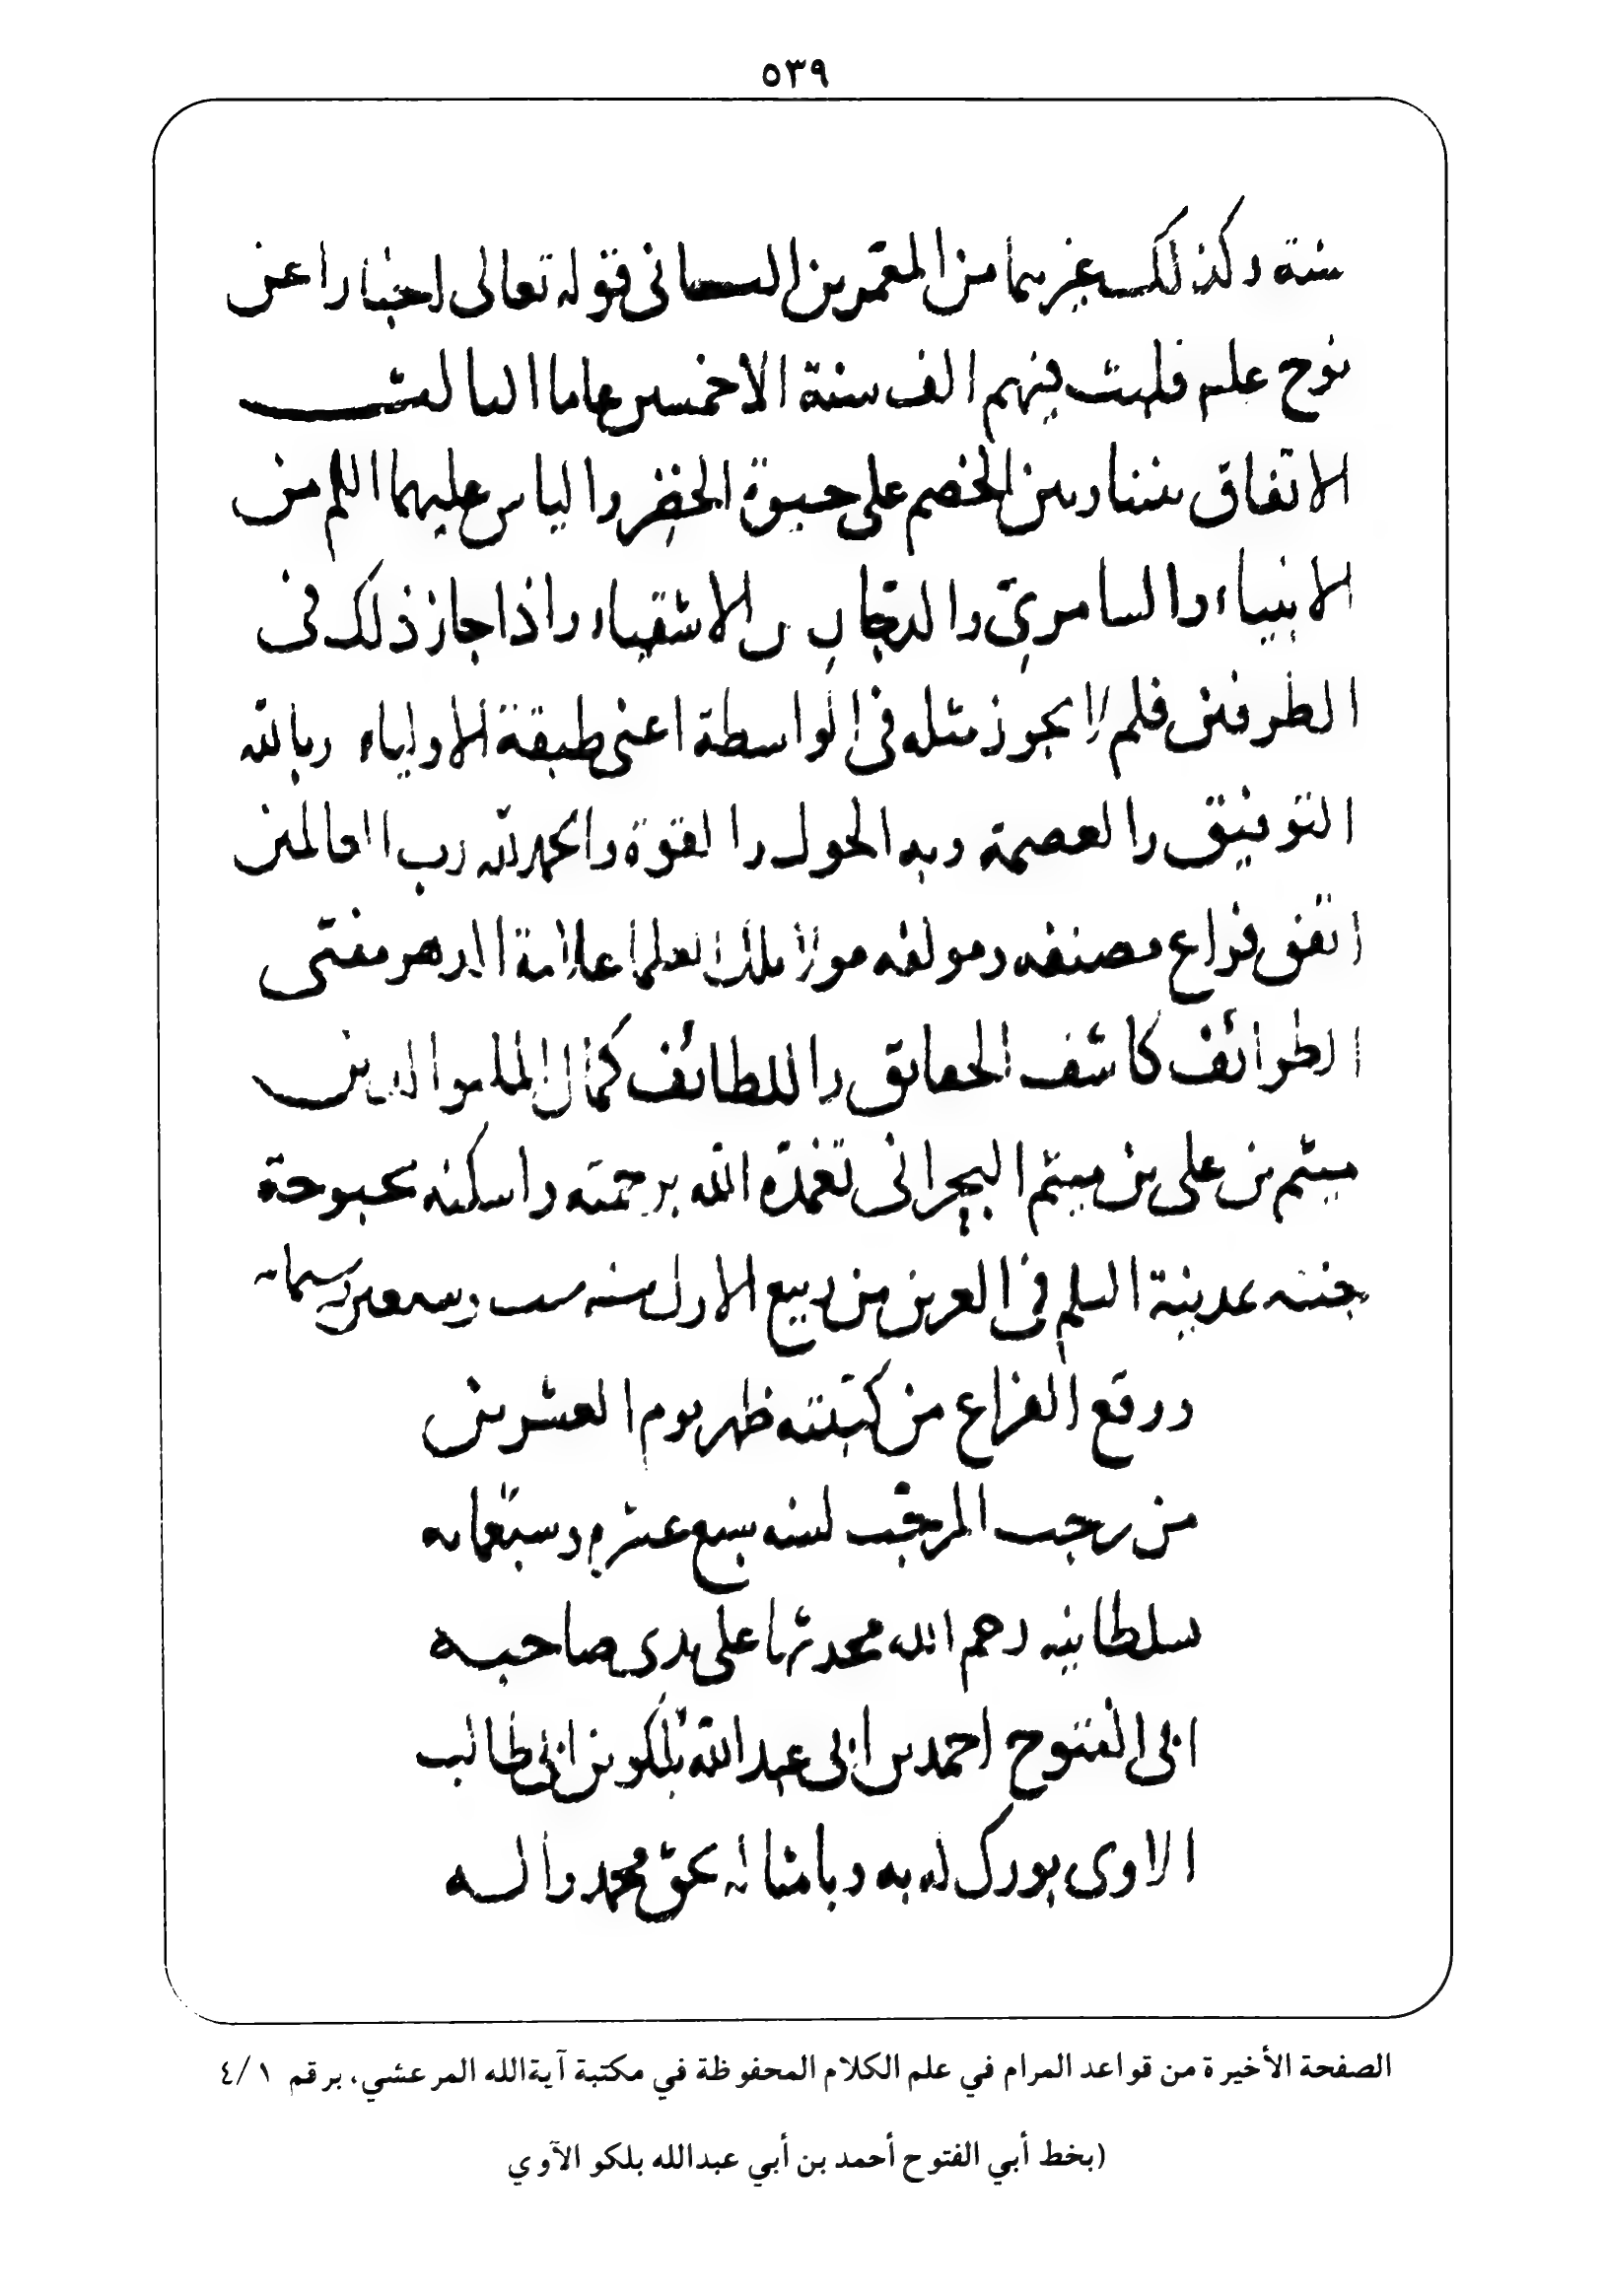 ٥٣٩
سنة وكذلك غيرهما من المعمرين الثاني قوله تعالى اخبارا عن
نوح علم فلبث فيهم الف سنة الا خمسين عاما الثالث
الاتفاق بيننا وبين الخصم على حيوة الخضر والياس عليهما السلم من
الانبياء والسامري والدجال من الاشقياء واذا جاز ذلك في
الطرفين فلم لا يجوز مثله في الواسطة اعنى طبقة الاولياء وبالله
التوفيق والعصمة وبه الحول والقوة والحمد لله رب العالمين
اتفق فراغ مصنفه ومولفه مولانا ملك العلما علامة الدهر مفتى
الطرائف كاشف الحقايق واللطائف كمال الملة والدين
ميثم بن على بن ميثم البحرانى تغمده الله برحمته واسكنه بحبوحة
جنته بمدينة السلم في العرين من ربيع الاول سنه ست وسبعين وستمايه
ووقع الفراغ من كتبته ظهر يوم العشرين
من رجب المرجب لسنه سبع عشره وسبعمايه
سلطانيه رحم الله محمد ثها على يدى صاحبه
ابى الفتوح احمد بن ابى عبد الله بلكو بن ابى طالب
الاوى بورك له به وبامثاله بحق محمد واله
الصفحة الأخيرة من قواعد المرام في علم الكلام المحفوظة في مكتبة آيةالله المرعشي، برقم ٤/١
(بخط أبي الفتوح أحمد بن أبي عبدالله بلكو الآوي